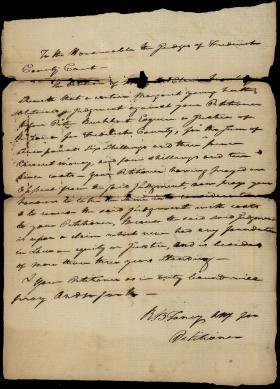 To the Honourable the Judges of Frederick
County Court —
The Petition of
Sheweth that a certain Margaret young hath
obtained a Judgment against your Petitioner
before Esquire a Justice of
Peace for Frederick County, for the sum of
pounds Six Shillings and three pence
Current money, and four shillings and ten
pence costs — Your Petitioner having prayed an
Appeal from the said Judgment now prays your
honours to take the same into consideration
& to reverse the said Judgment with costs
to your Petitioner, Because the said Judgment
is upon a claim which never had any foundation
in Law — equity or Justice, and is besides
of more than three years standing —
& your Petitioner as in duty bound will
pray And so forth —
R B Taney Atty for
Petitioner